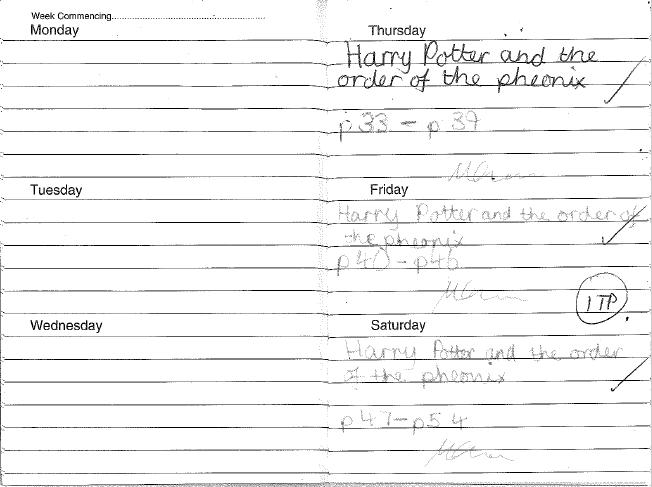 Week Commencing
Monday
Tuesday
Wednesday
Thursday
Harry Potter and the
order of the pheonix
p33 - p39
Friday
Harry Potter and the order of
the pheonix
p40 - p46
1 TP
Saturday
Harry Potter and the order
of the pheonix
p47 - p54